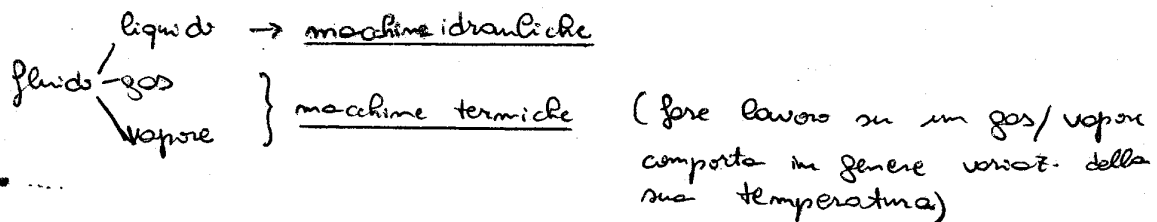 liquido → macchine idrauliche
fluido gas
vapore } macchine termiche (fare lavoro su un gas/vapore
comporta in genere variaz. della
sua temperatura)
....